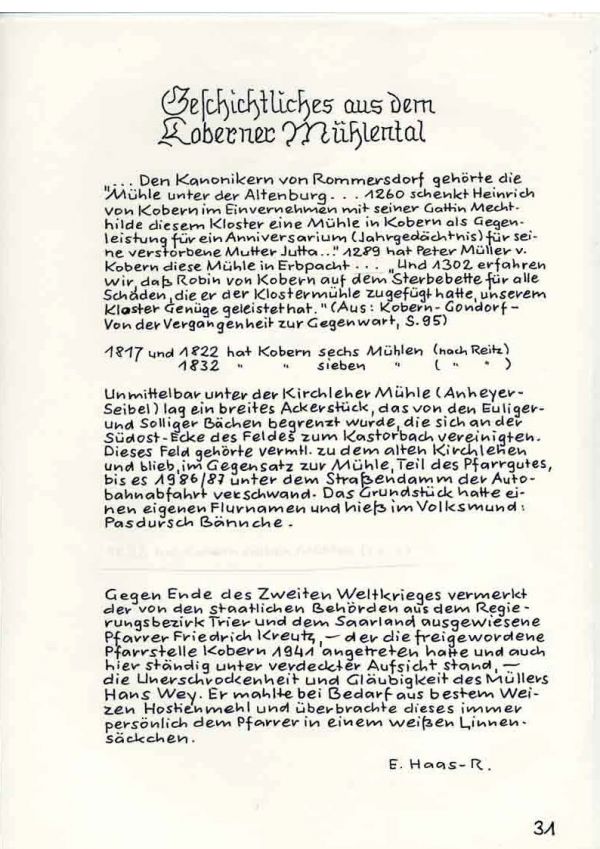 Geschichtliches aus dem
Koberner Mühlental
"... Den Kanonikern von Rommersdorf gehörte die
"Mühle unter der Altenburg... 1260 schenkt Heinrich
von Kobern im Einvernehmen mit seiner Gattin Mecht-
hilde diesem Kloster eine Mühle in Kobern als Gegen-
leistung für ein Anniversarium (Jahrgedächtnis) für sei-
ne verstorbene Mutter Jutta..." 1289 hat Peter Müller v.
Kobern diese Mühle in Erbpacht.... "Und 1302 erfahren
wir, daß Robin von Kobern auf dem Sterbebette für alle
Schäden, die er der Klostermühle zugefügt hatte, unserem
Kloster Genüge geleistet hat." (Aus: Kobern-Gondorf-
Von der Vergangenheit zur Gegenwart, S.95)
1817 und 1822 hat Kobern sechs Mühlen (nach Reitz)
1832 " " sieben " ( " " )
Unmittelbar unter der Kirchleher Mühle (Anheyer-
Seibel) lag ein breites Ackerstück, das von den Euliger-
und Solliger Bächen begrenzt wurde, die sich an der
Südost-Ecke des Feldes zum Kastorbach vereinigten.
Dieses Feld gehörte vermtl. zu dem alten Kirchlehen
und blieb, im Gegensatz zur Mühle, Teil des Pfarrgutes,
bis es 1986/87 unter dem Straßendamm der Auto-
bahnabfahrt verschwand. Das Grundstück hatte ei-
nen eigenen Flurnamen und hieß im Volksmund:
Pasdursch Bännche.
Gegen Ende des Zweiten Weltkrieges vermerkt
der von den staatlichen Behörden aus dem Regie-
rungsbezirk Trier und dem Saarland ausgewiesene
Pfarrer Friedrich Kreutz, – der die freigewordene
Pfarrstelle Kobern 1941 angetreten hatte und auch
hier ständig unter verdeckter Aufsicht stand, –
die Unerschrockenheit und Gläubigkeit des Müllers
Hans Wey. Er mahlte bei Bedarf aus bestem Wei-
zen Hostienmehl und überbrachte dieses immer
persönlich dem Pfarrer in einem weißen Linnen-
säckchen.
E. Haas-R.
31